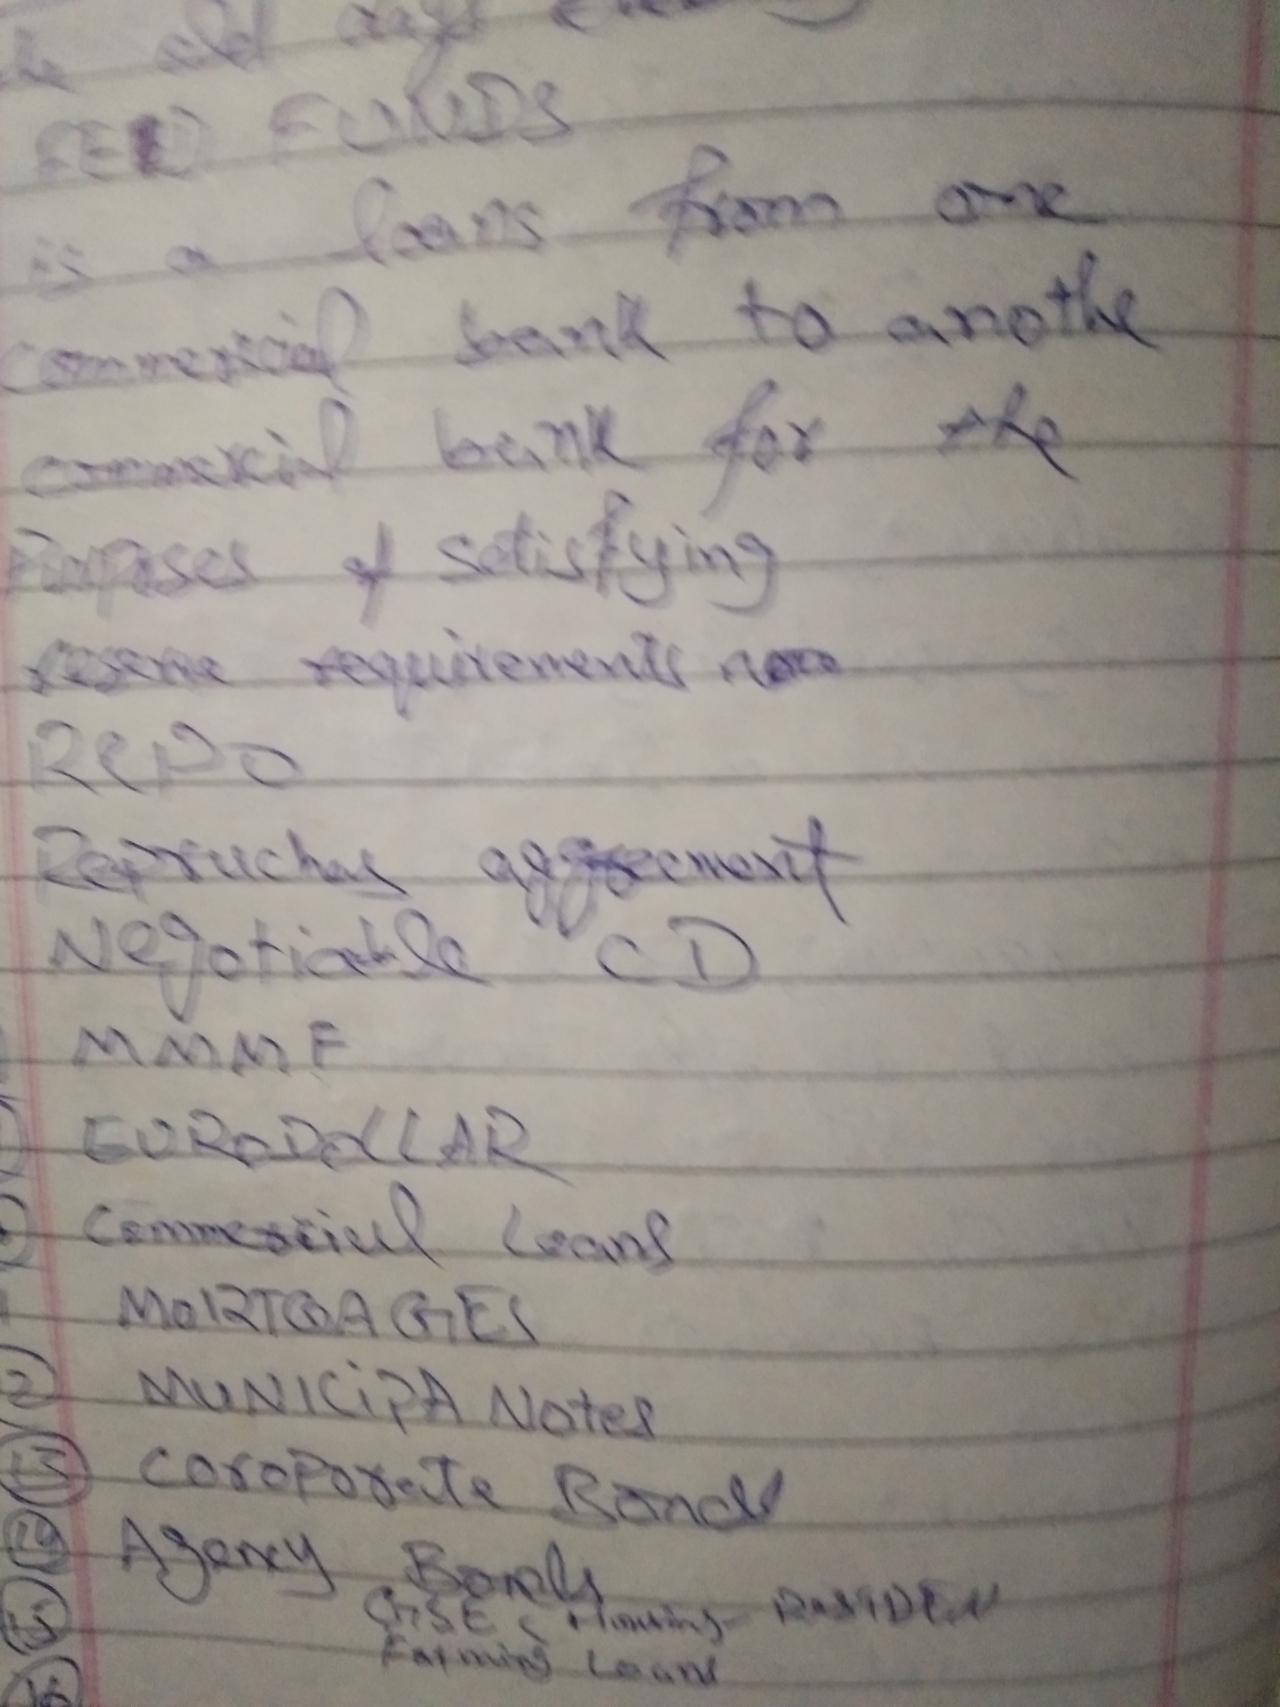 old days
FED FUNDS
is a loans from one
commercial bank to anothe
commercial bank for the
Purposes of satisfying
reserve requirements
REPO
Repruches aggreement
Negotiable CD
MMMF
EURODOLLAR
Commercial Loans
MORTGAGES
MUNICIPA Notes
13 Coroporate Bonds
14 Agency Bonds
15 GSE Housing
Farming Loans
16